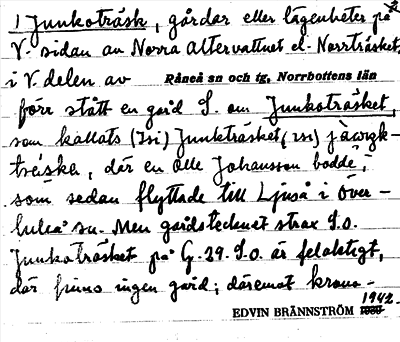 1 Junkoträsk, gårdar eller lägenheter på
V. sidan av Norra Altervattnet el. Norrträsket,
i V. delen av Råneå sn och tg, Norrbottens län
förr stått en gård S. om Junkoträsket,
som kallats (151) Junkträsket,
träska, där en Olle Johansson bodde,
som sedan flyttade till Ljuså i Över-
luleå sn. Men gårdstecknet strax S.o.
Junkoträsket på G. 29. S.o. är felaktigt,
där finns ingen gård; däremot krono-
1942.
EDVIN BRÄNNSTRÖM